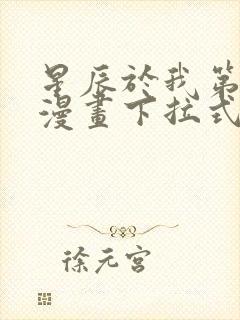 星辰於我第
漫畫下拉式
徐元宫